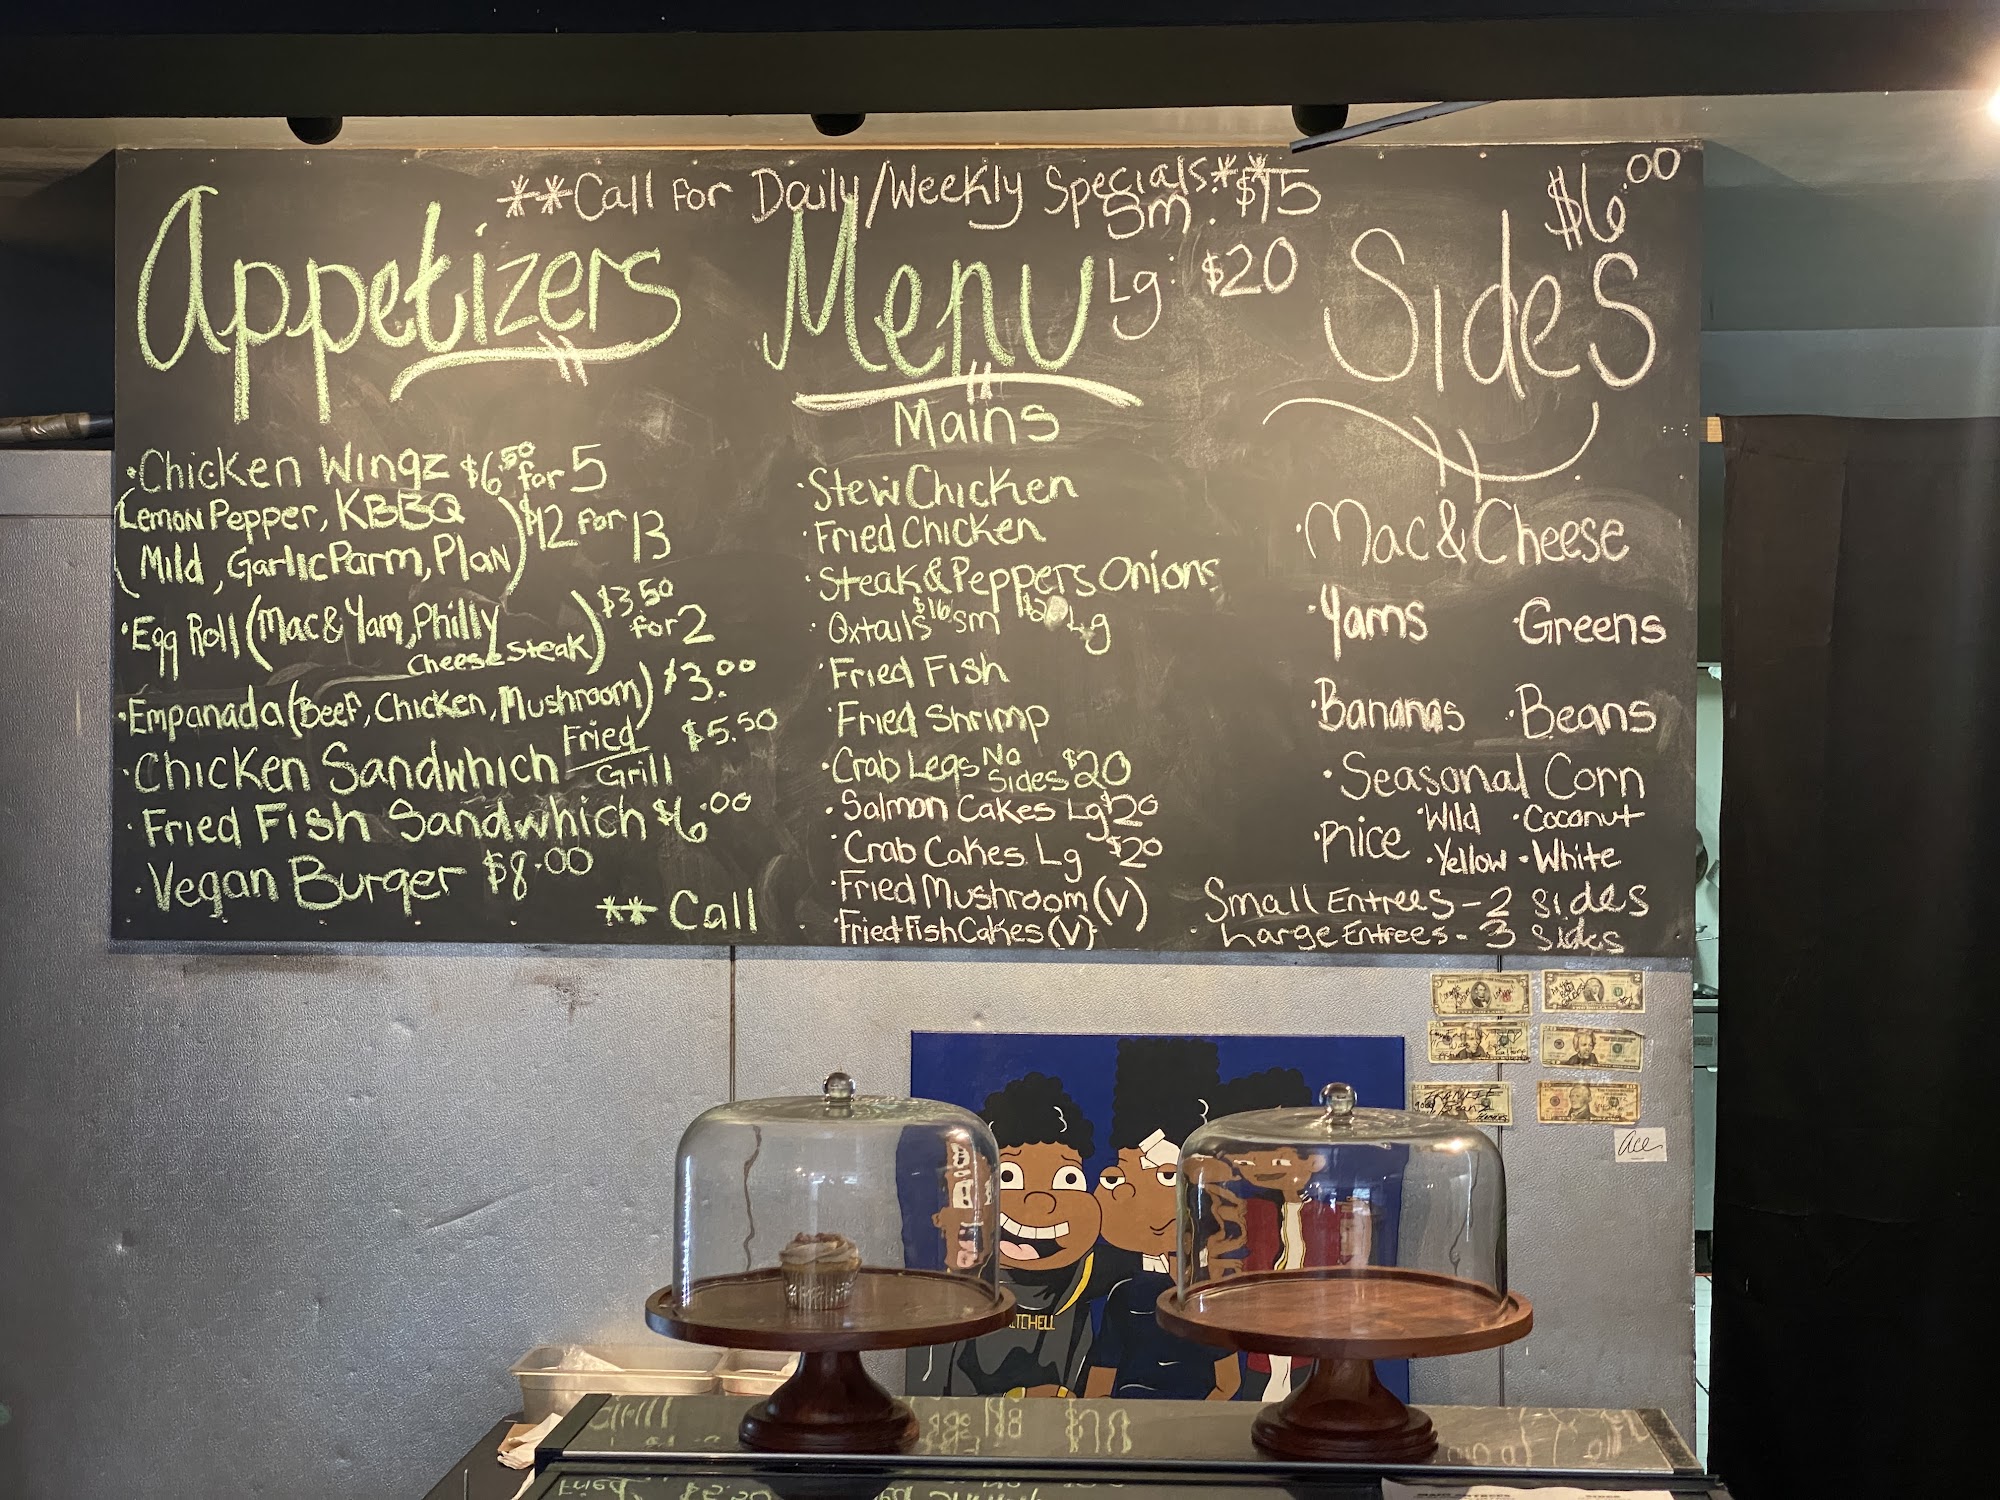 **Call For Daily/Weekly Specials**
Appetizers
·Chicken Wingz $6.50 for 5
(Lemon Pepper, KBBQ
Mild, Garlic Parm, Plan) $12 for 13
·Egg Roll (Mac & Yam, Philly
Cheesesteak) $3.50 for 2
·Empanada (Beef, Chicken, Mushroom) $3.00
·Chicken Sandwhich Fried
Grill $5.50
·Fried Fish Sandwhich $6.00
·Vegan Burger $8.00
** Call
Menu
Sm. $15
Lg: $20
Mains
·Stew Chicken
·Fried Chicken
·Steak & Peppers Onions
·Oxtails $16 sm Lg
·Fried Fish
·Fried Shrimp
·Crab Legs No
Sides $20
·Salmon Cakes Lg $20
Crab Cakes Lg $20
·Fried Mushroom (V)
·Fried Fish Cakes (V)
Sides
$6.00
·Mac & Cheese
·Yams ·Greens
·Bananas ·Beans
·Seasonal Corn
·Rice ·Wild ·Coconut
·Yellow ·White
Small Entrees - 2 sides
·Large Entrees - 3 sides
ace
ITCHELL